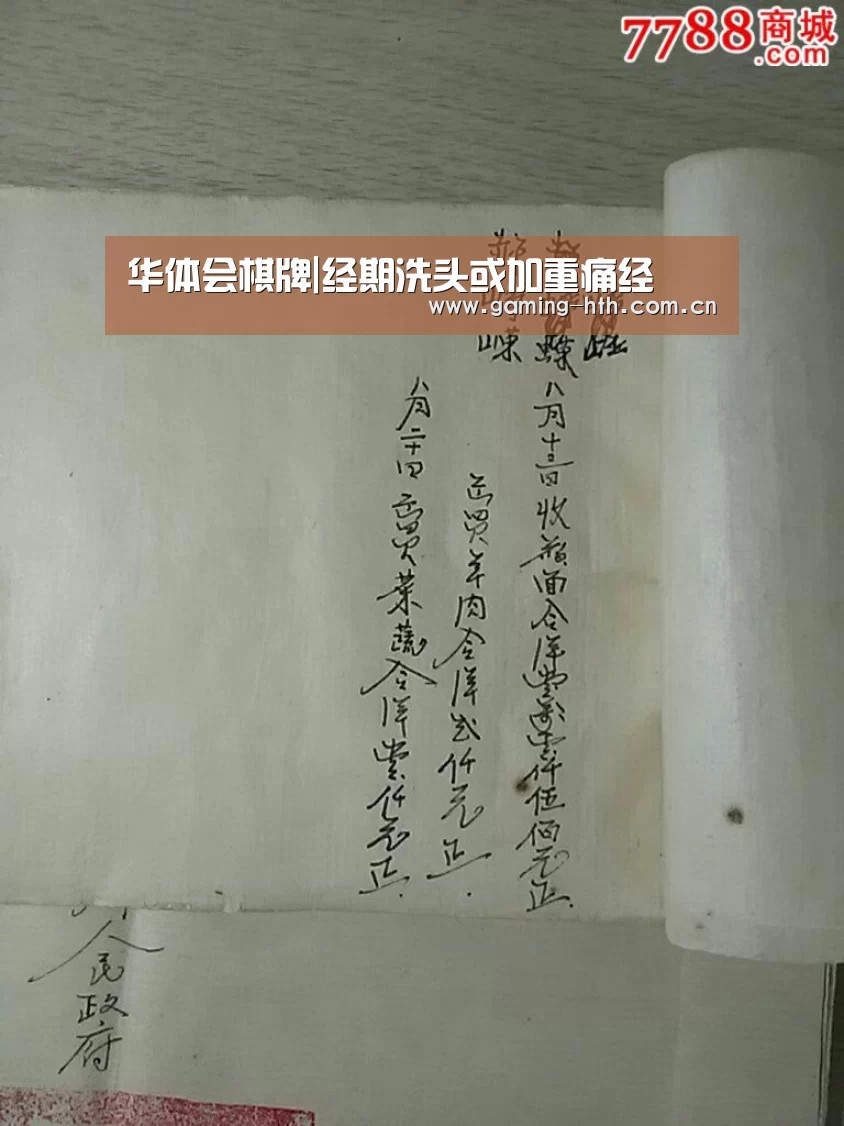 7788商城
.com
华体会棋牌|经期洗头或加重痛经
www.gaming-hth.com.cn
八月十三日收 面合洋壹万壹仟伍佰元正.
买羊肉合洋弍仟元正.
八月二十四 买菜蔬合洋壹仟元正.
人民政府